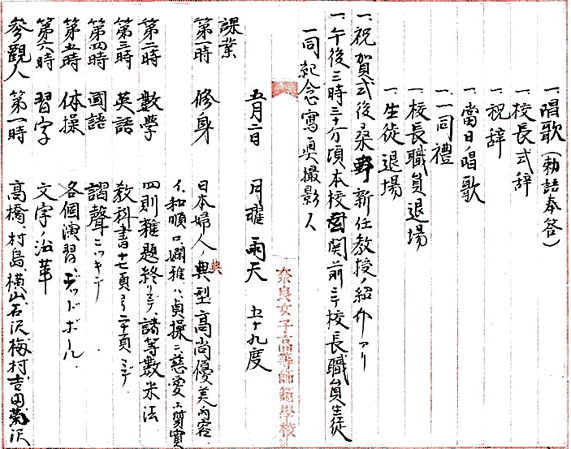 一、唱歌(勅語奉答)
一、校長式辞
一、祝辞
一、當日ノ唱歌
一、一同禮
一、校長職員退場
一、生徒退場
一、祝賀式後桑野新任教授ノ紹介アリ
一、午後三時三十分頃本校玄関前ニテ校長職員生徒
一同紀念寫真撮影ス
五月二日 月曜 雨天 五十九度
奈良女子高等師範學校
課業
第一時 修身 日本婦人ノ典型 高尚優美ノ内容
イ、和順 ロ、嫻雅 ハ、貞操 ニ、慈愛 ホ、質實
第二時 數學 四則雑題終リマデ、諸等數米法
第三時 英語 教科書十七頁ヨリ二十頁マデ
第四時 國語 謡聲ニツキテ
第五時 体操 各個演習、デッドボール
第六時 習字 文字ノ沿革
參觀人 第一時 高橋、村島、横山、石沢、梅村、吉田、菊沢